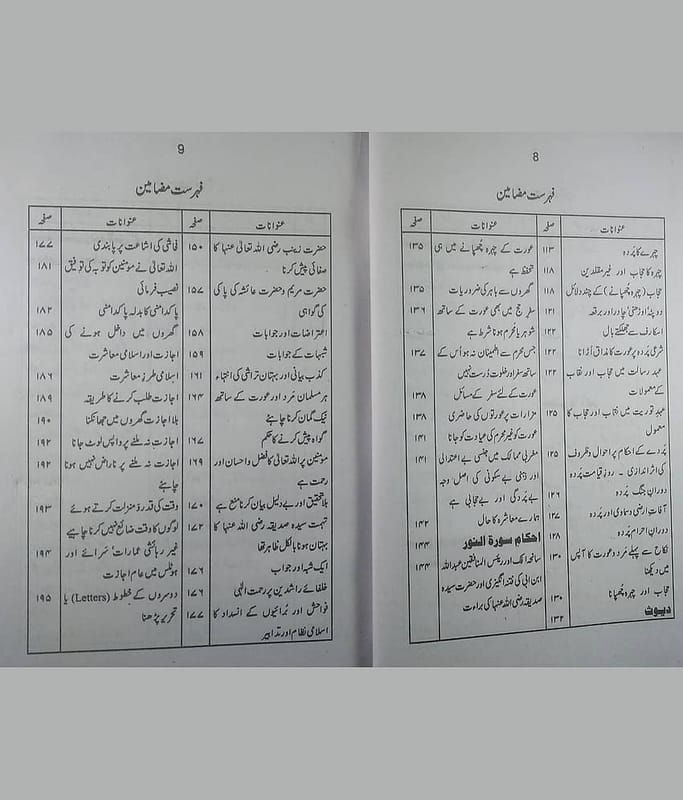 8
فہرست مضامین
عنوانات صفحہ
چہرے کا پردہ ۱۱۳
چہرہ کا حجاب اور غیر مقلدین ۱۱۸
حجاب (چہرہ چھپانے) کے چند دلائل ۱۱۸
دوپٹہ اوڑھنی، چادر اور برقعہ ۱۲۱
اسکارف سے جھلکتے بال ۱۲۲
شرعی پردہ پر عورت کا مذاق اڑانا ۱۲۲
عہد رسالت میں حجاب اور نقاب ۱۲۲
کے معمولات
عہد توریت میں نقاب اور حجاب کا ۱۲۵
معمول
پردے کے احکام پر احوال و ظروف ۱۲۵
کی اثر اندازی ۔ روز قیامت پردہ
دوران جنگ پردہ ۱۲۶
آفات ارضی و سماوی اور پردہ ۱۲۷
دوران احرام پردہ ۱۲۸
نکاح سے پہلے مرد و عورت کا آپس ۱۳۰
میں دیکھنا
حجاب اور چہرہ چھپانا ۱۳۰
دیوث ۱۳۲
عنوانات صفحہ
عورت کے چہرہ چھپانے میں ہی ۱۳۵
تحفظ ہے
گھروں سے باہر کی ضروریات ۱۳۵
سفر حج میں بھی عورت کے ساتھ ۱۳۶
شوہر یا محرم ہونا شرط ہے
جس محرم سے اطمینان نہ ہو اُس کے ۱۳۷
ساتھ سفر اور خلوت درست نہیں
عورت کے لئے سفر کے مسائل ۱۳۸
مزارات پر عورتوں کی حاضری ۱۳۸
عورت کو غیر محرم کی عیادت کو جانا ۱۴۱
مغربی ممالک میں جنسی بے اعتدالی ۱۴۱
اور ذہنی بے سکونی کی اصل وجہ
بے پردگی اور بے حجابی ہے
ہمارے معاشرہ کا حال ۱۴۲
احکام سورة النور ۱۴۴
سانحہ افک اور رئیس المنافقین عبداللہ ۱۴۴
ابن ابی کی فتنہ انگیزی اور حضرت سیدہ
صدیقہ رضی اللہ عنہا کی براءت
9
فہرست مضامین
عنوانات صفحہ
حضرت زینب رضی اللہ تعالیٰ عنہا کا ۱۵۰
صفائی پیش کرنا
حضرت مریم و حضرت عائشہ کی پاکی ۱۵۷
کی گواہی
اعتراضات اور جوابات ۱۵۸
شبہات کے جوابات ۱۵۹
کذب بیانی اور بہتان تراشی کی انتہاء ۱۶۱
ہر مسلمان مرد اور عورت کے ساتھ ۱۶۴
نیک گمان کرنا چاہئے
گواہ پیش کرنے کا حکم ۱۶۷
مؤمنین پر اللہ تعالیٰ کا فضل و احسان اور ۱۶۹
رحمت ہے
بلا تحقیق اور بے دلیل بیان کرنا منع ہے ۱۷۰
تہمت سیدہ صدیقہ رضی اللہ عنہا کا ۱۷۲
بہتان ہونا بالکل ظاہر تھا
ایک شبہ اور جواب ۱۷۶
خلفائے راشدین پر رحمت الٰہی ۱۷۶
فواحش اور بُرائیوں کے انسداد کا ۱۷۷
اسلامی نظام اور تدابیر
عنوانات صفحہ
فحاشی کی اشاعت پر پابندی ۱۷۷
اللہ تعالیٰ نے مؤمنین کو توبہ کی توفیق ۱۸۱
نصیب فرمائی
پاکدامنی کا بدلہ پاکدامنی ۱۸۲
گھروں میں داخل ہونے کی ۱۸۵
اجازت اور اسلامی معاشرت
اسلامی طرز معاشرت ۱۸۶
اجازت طلب کرنے کا طریقہ ۱۸۹
بلا اجازت گھروں میں جھانکنا ۱۹۰
اجازت نہ ملنے پر واپس لوٹ جانا ۱۹۲
اجازت نہ ملنے پر ناراض نہیں ہونا ۱۹۲
چاہئے
وقت کی قدر و منزلت کرتے ہوئے ۱۹۳
لوگوں کا وقت ضائع نہیں کرنا چاہیے
غیر رہائشی عمارات، سرائے اور ۱۹۴
ہوٹلس میں عام اجازت
دوسروں کے خطوط (Letters) یا ۱۹۵
تحریر پڑھنا